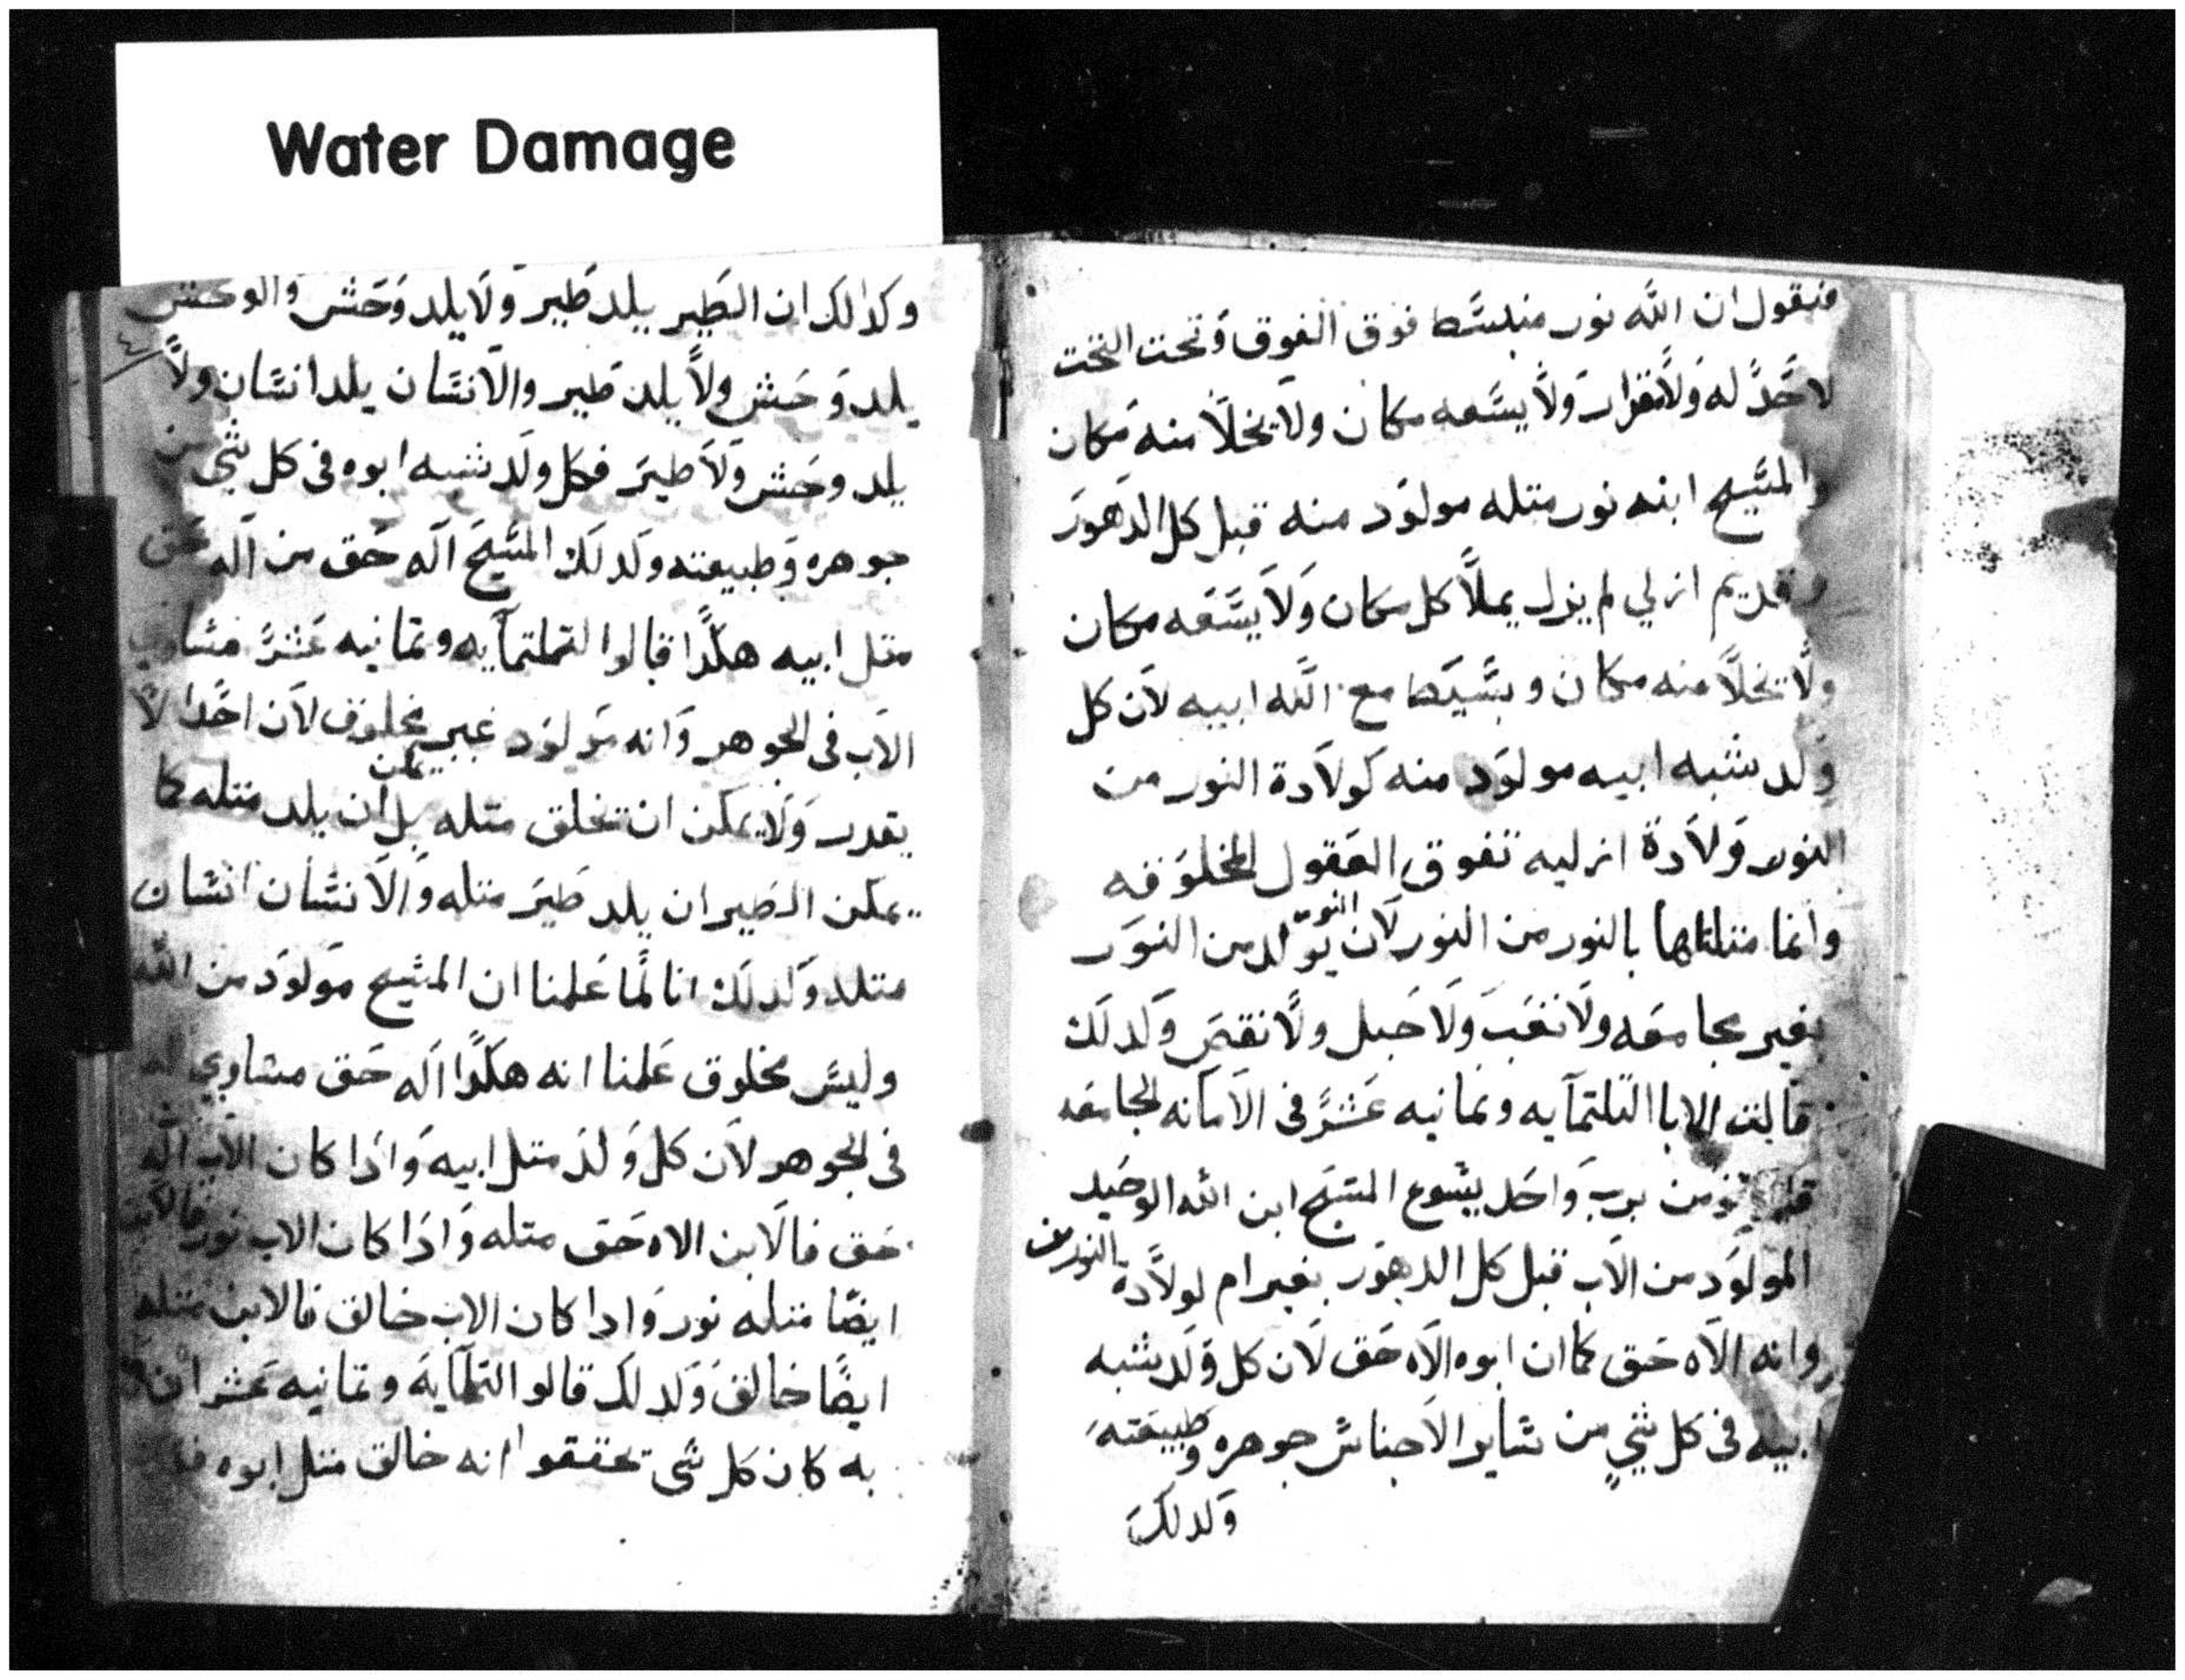 Water Damage
فنقول ان الله نور منبسط فوق الفوق وتحت التحت
لا حد له ولا قرار ولا يسعه مكان ولا يخلا منه مكان
والمسيح ابنه نور متله مولود منه قبل كل الدهور
قديم ازلي لم يزل يملا كل مكان ولا يسعه مكان
ولا يخلا منه مكان وبسيط مع الله ابيه لان كل
ولد شبه ابيه مولود منه كولادة النور من
النور ولادة ازليه تفوق العقول المخلوقه
وانما متلناها بالنور من النور لان النور يتولد من النور
بغير مجامعه ولا تعب ولا حبل ولا نقص ولدلك
قالت الابا التلتمايه وتمانيه عشر في الامانه الجامعه
نومن برب واحد يسوع المسيح ابن الله الوحيد
المولود من الاب قبل كل الدهور بغير ام لولادة النور من
وانه الاه حق كما ان ابوه الاه حق لان كل ولد شبه
ابيه في كل شي من ساير الاجناس جوهره وطبيعته
ولدلك
٤
وكدالك ان الطير يلد طير ولا يلد وحش والوحش
يلد وحش ولا يلد طير والانسان يلد انسان ولا
يلد وحش ولا طير فكل ولد شبه ابوه في كل شي من
جوهره وطبيعته ولدلك المسيح اله حق من اله حق
متل ابيه هكدا قالوا التلتمايه وتمانيه عشر مساوي
الاب في الجوهر وانه مولود غير مخلوق لان احدا لا
يقدر ولا يمكن ان تخلق متله بل يمكن ان يلد متله كما
يمكن الطير ان يلد طير متله والانسان انسان
متله ولدلك انا لما علمنا ان المسيح مولود من الله
وليس مخلوق علمنا انه هكدا اله حق مساوي له
في الجوهر لان كل ولد متل ابيه وادا كان الاب اله
حق فالابن الاه حق متله وادا كان الاب نور فالابن
ايضا متله نور وادا كان الاب خالق فالابن متله
ايضا خالق ولدلك قالوا التلتمايه وتمانيه عشر ان
به كان كل شي تحققوا انه خالق متل ابوه